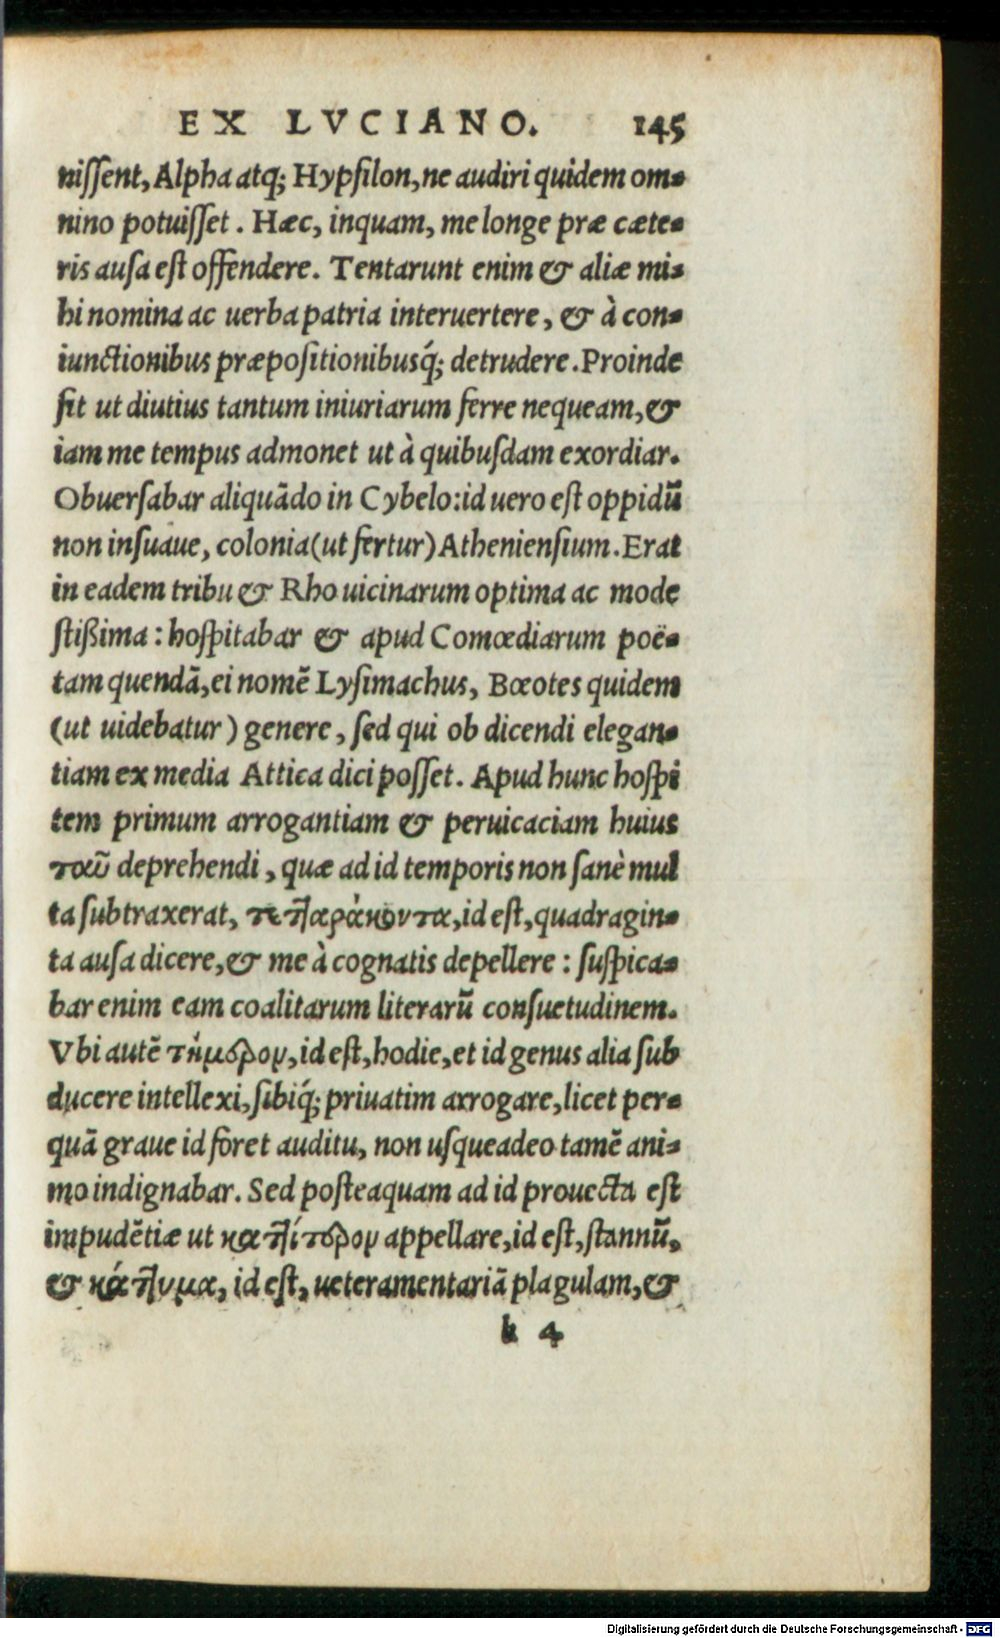 EX LVCIANO. 145
niſſent, Alpha atq; Hypſilon, ne audiri quidem om-
nino potuiſſet. Hæc, inquam, me longe præ cæte-
ris auſa eſt offendere. Tentarunt enim & aliæ mi-
hi nomina ac uerba patria interuertere, & à con-
iunctionibus præpoſitionibusq́; detrudere. Proinde
fit ut diutius tantum iniuriarum ferre nequeam, &
iam me tempus admonet ut à quibuſdam exordiar.
Obuerſabar aliquãdo in Cybelo: id uero eſt oppidũ
non inſuaue, colonia (ut fertur) Athenienſium. Erat
in eadem tribu & Rho uicinarum optima ac mode
ſtißima: hoſpitabar & apud Comœdiarum poë-
tam quendã, ei nomẽ Lyſimachus, Bœotes quidem
(ut uidebatur) genere, ſed qui ob dicendi elegan-
tiam ex media Attica dici poſſet. Apud hunc hoſpi
tem primum arrogantiam & peruicaciam huius
ταῦ deprehendi, quæ ad id temporis non ſanè mul
ta ſubtraxerat, τετλαράκοντα, id eſt, quadragin-
ta auſa dicere, & me à cognatis depellere: ſuſpica-
bar enim eam coalitarum literarũ conſuetudinem.
Vbi autẽ τήμερον, id eſt, hodie, et id genus alia ſub
ducere intellexi, ſibiq́; priuatim arrogare, licet per-
quã graue id foret auditu, non uſqueadeo tamẽ ani-
mo indignabar. Sed poſteaquam ad id prouecta eſt
impudẽtiæ ut καττίτερον appellare, id eſt, ſtannũ,
& κάττυμα, id eſt, ueteramentariã plagulam, &
k 4
Digitalisierung gefördert durch die Deutsche Forschungsgemeinschaft - DFG